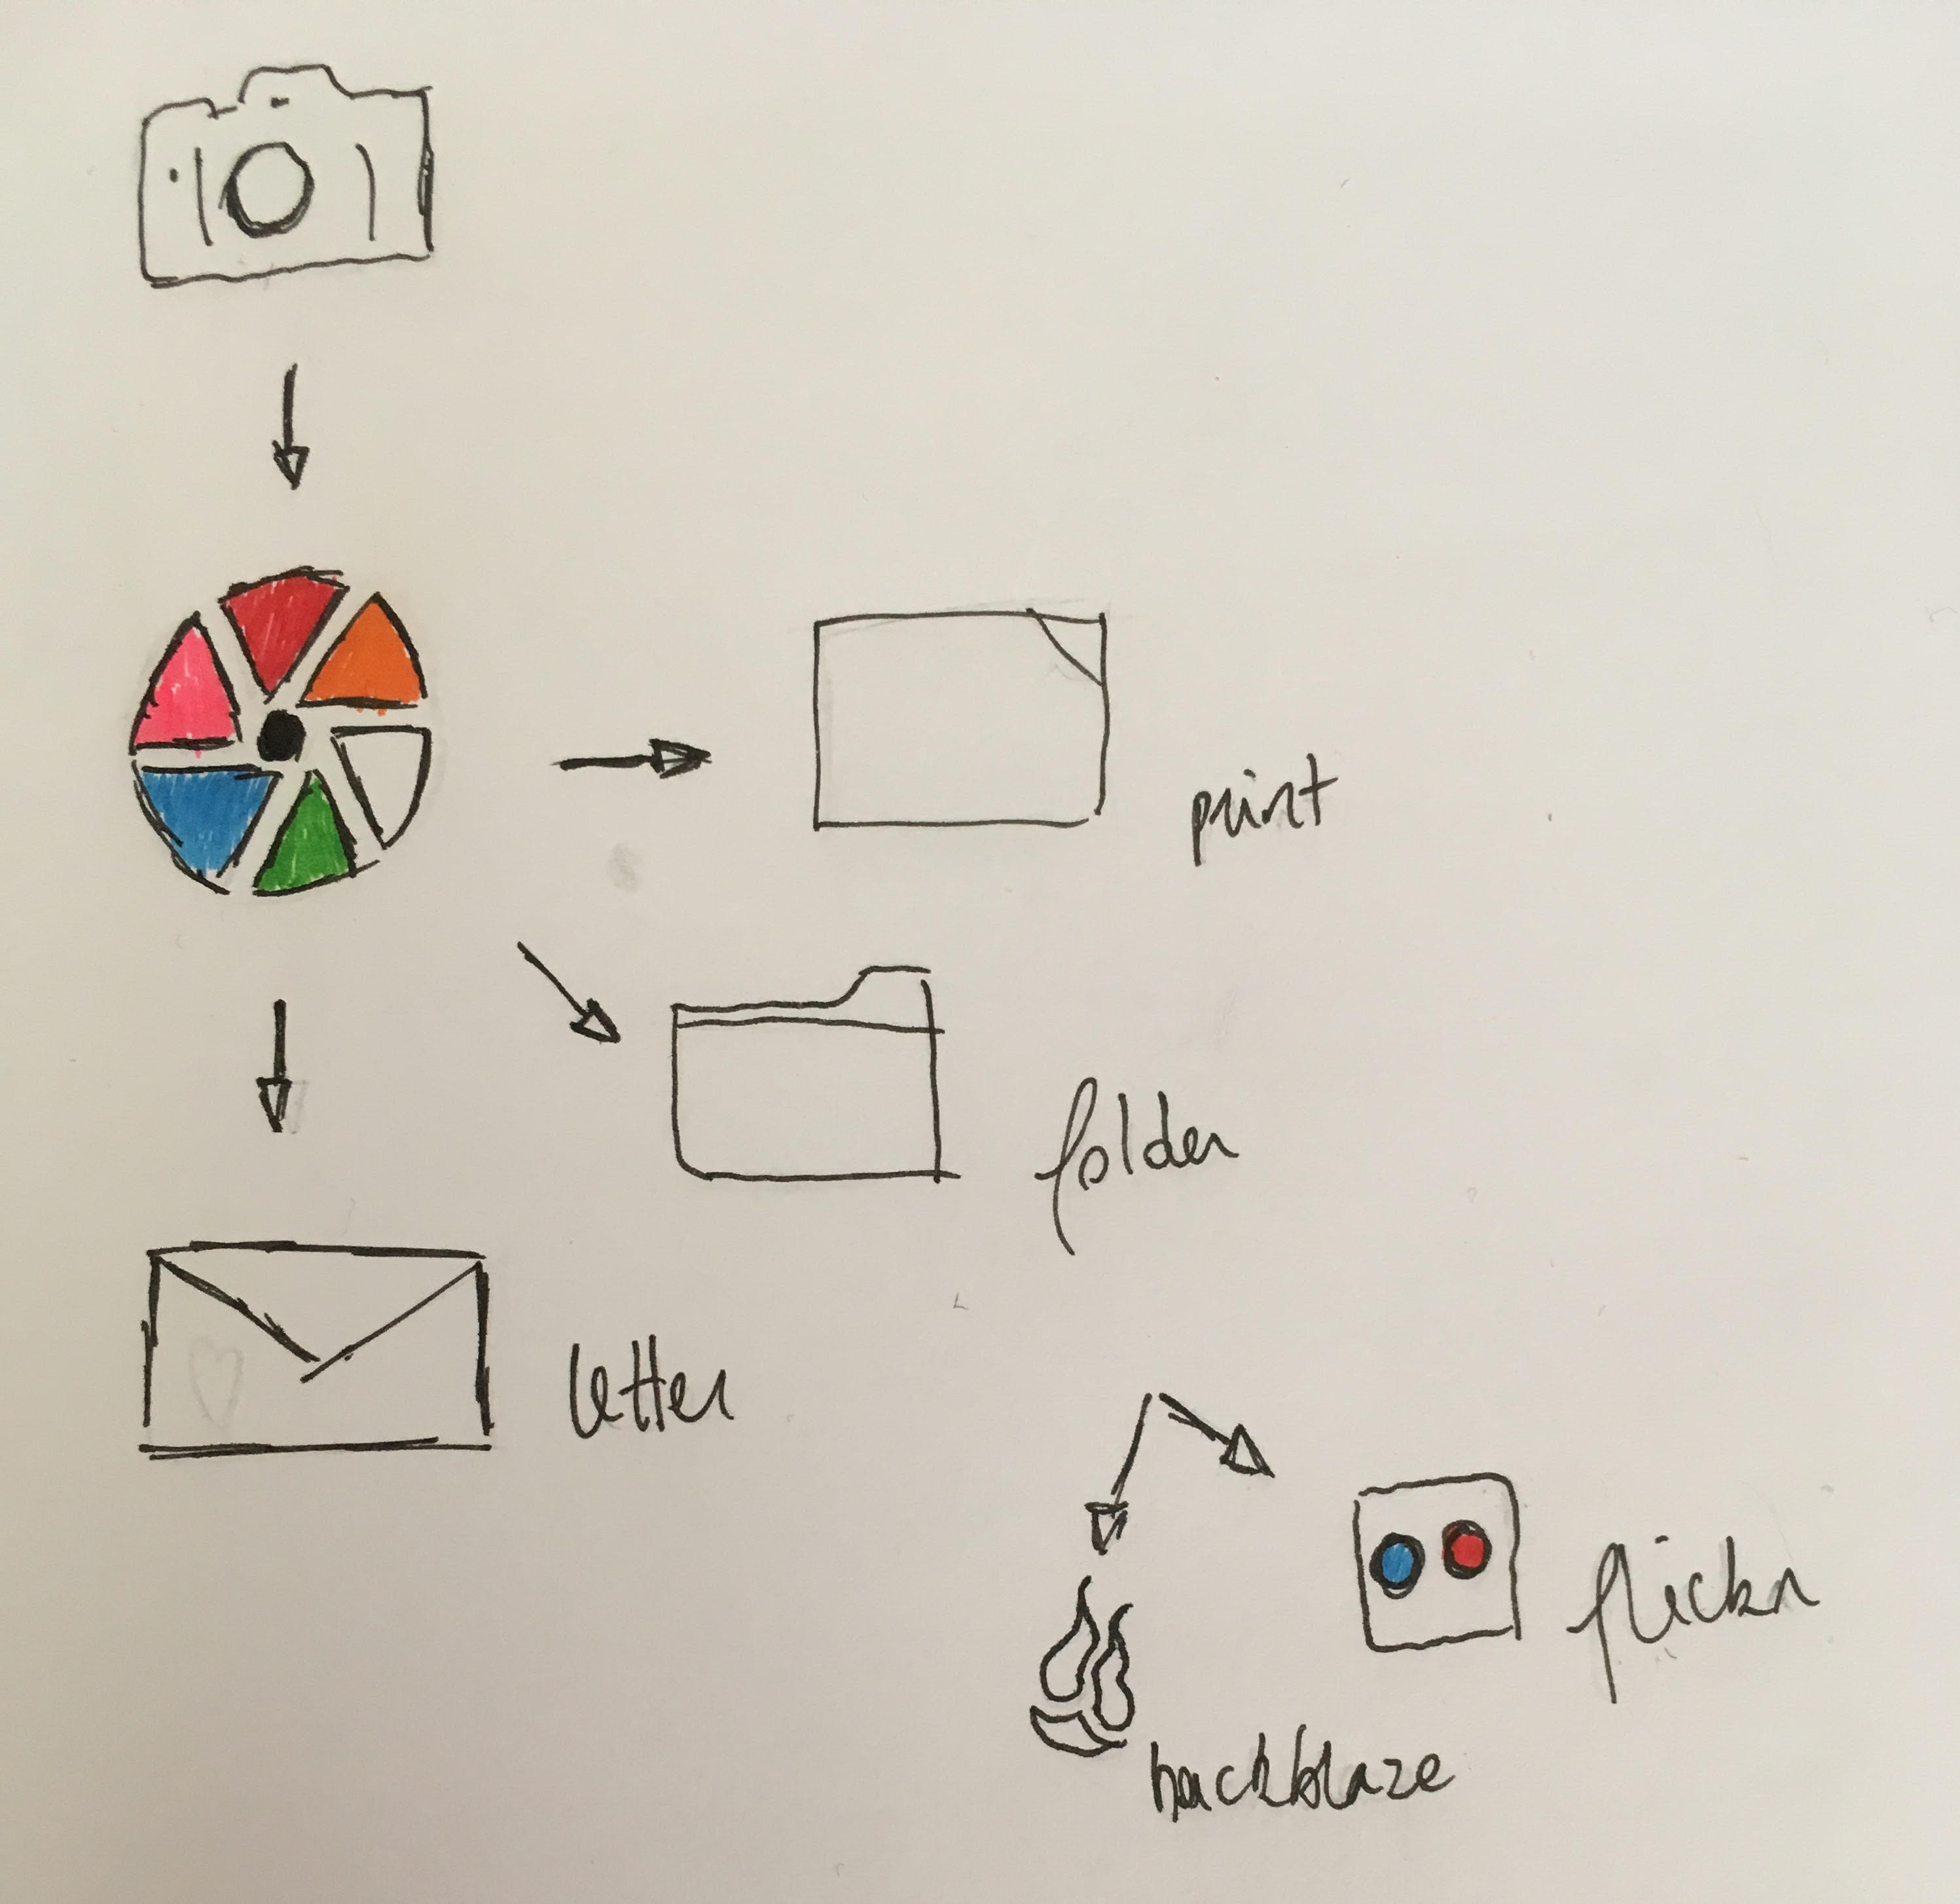 print
folder
letter
flickr
backblaze